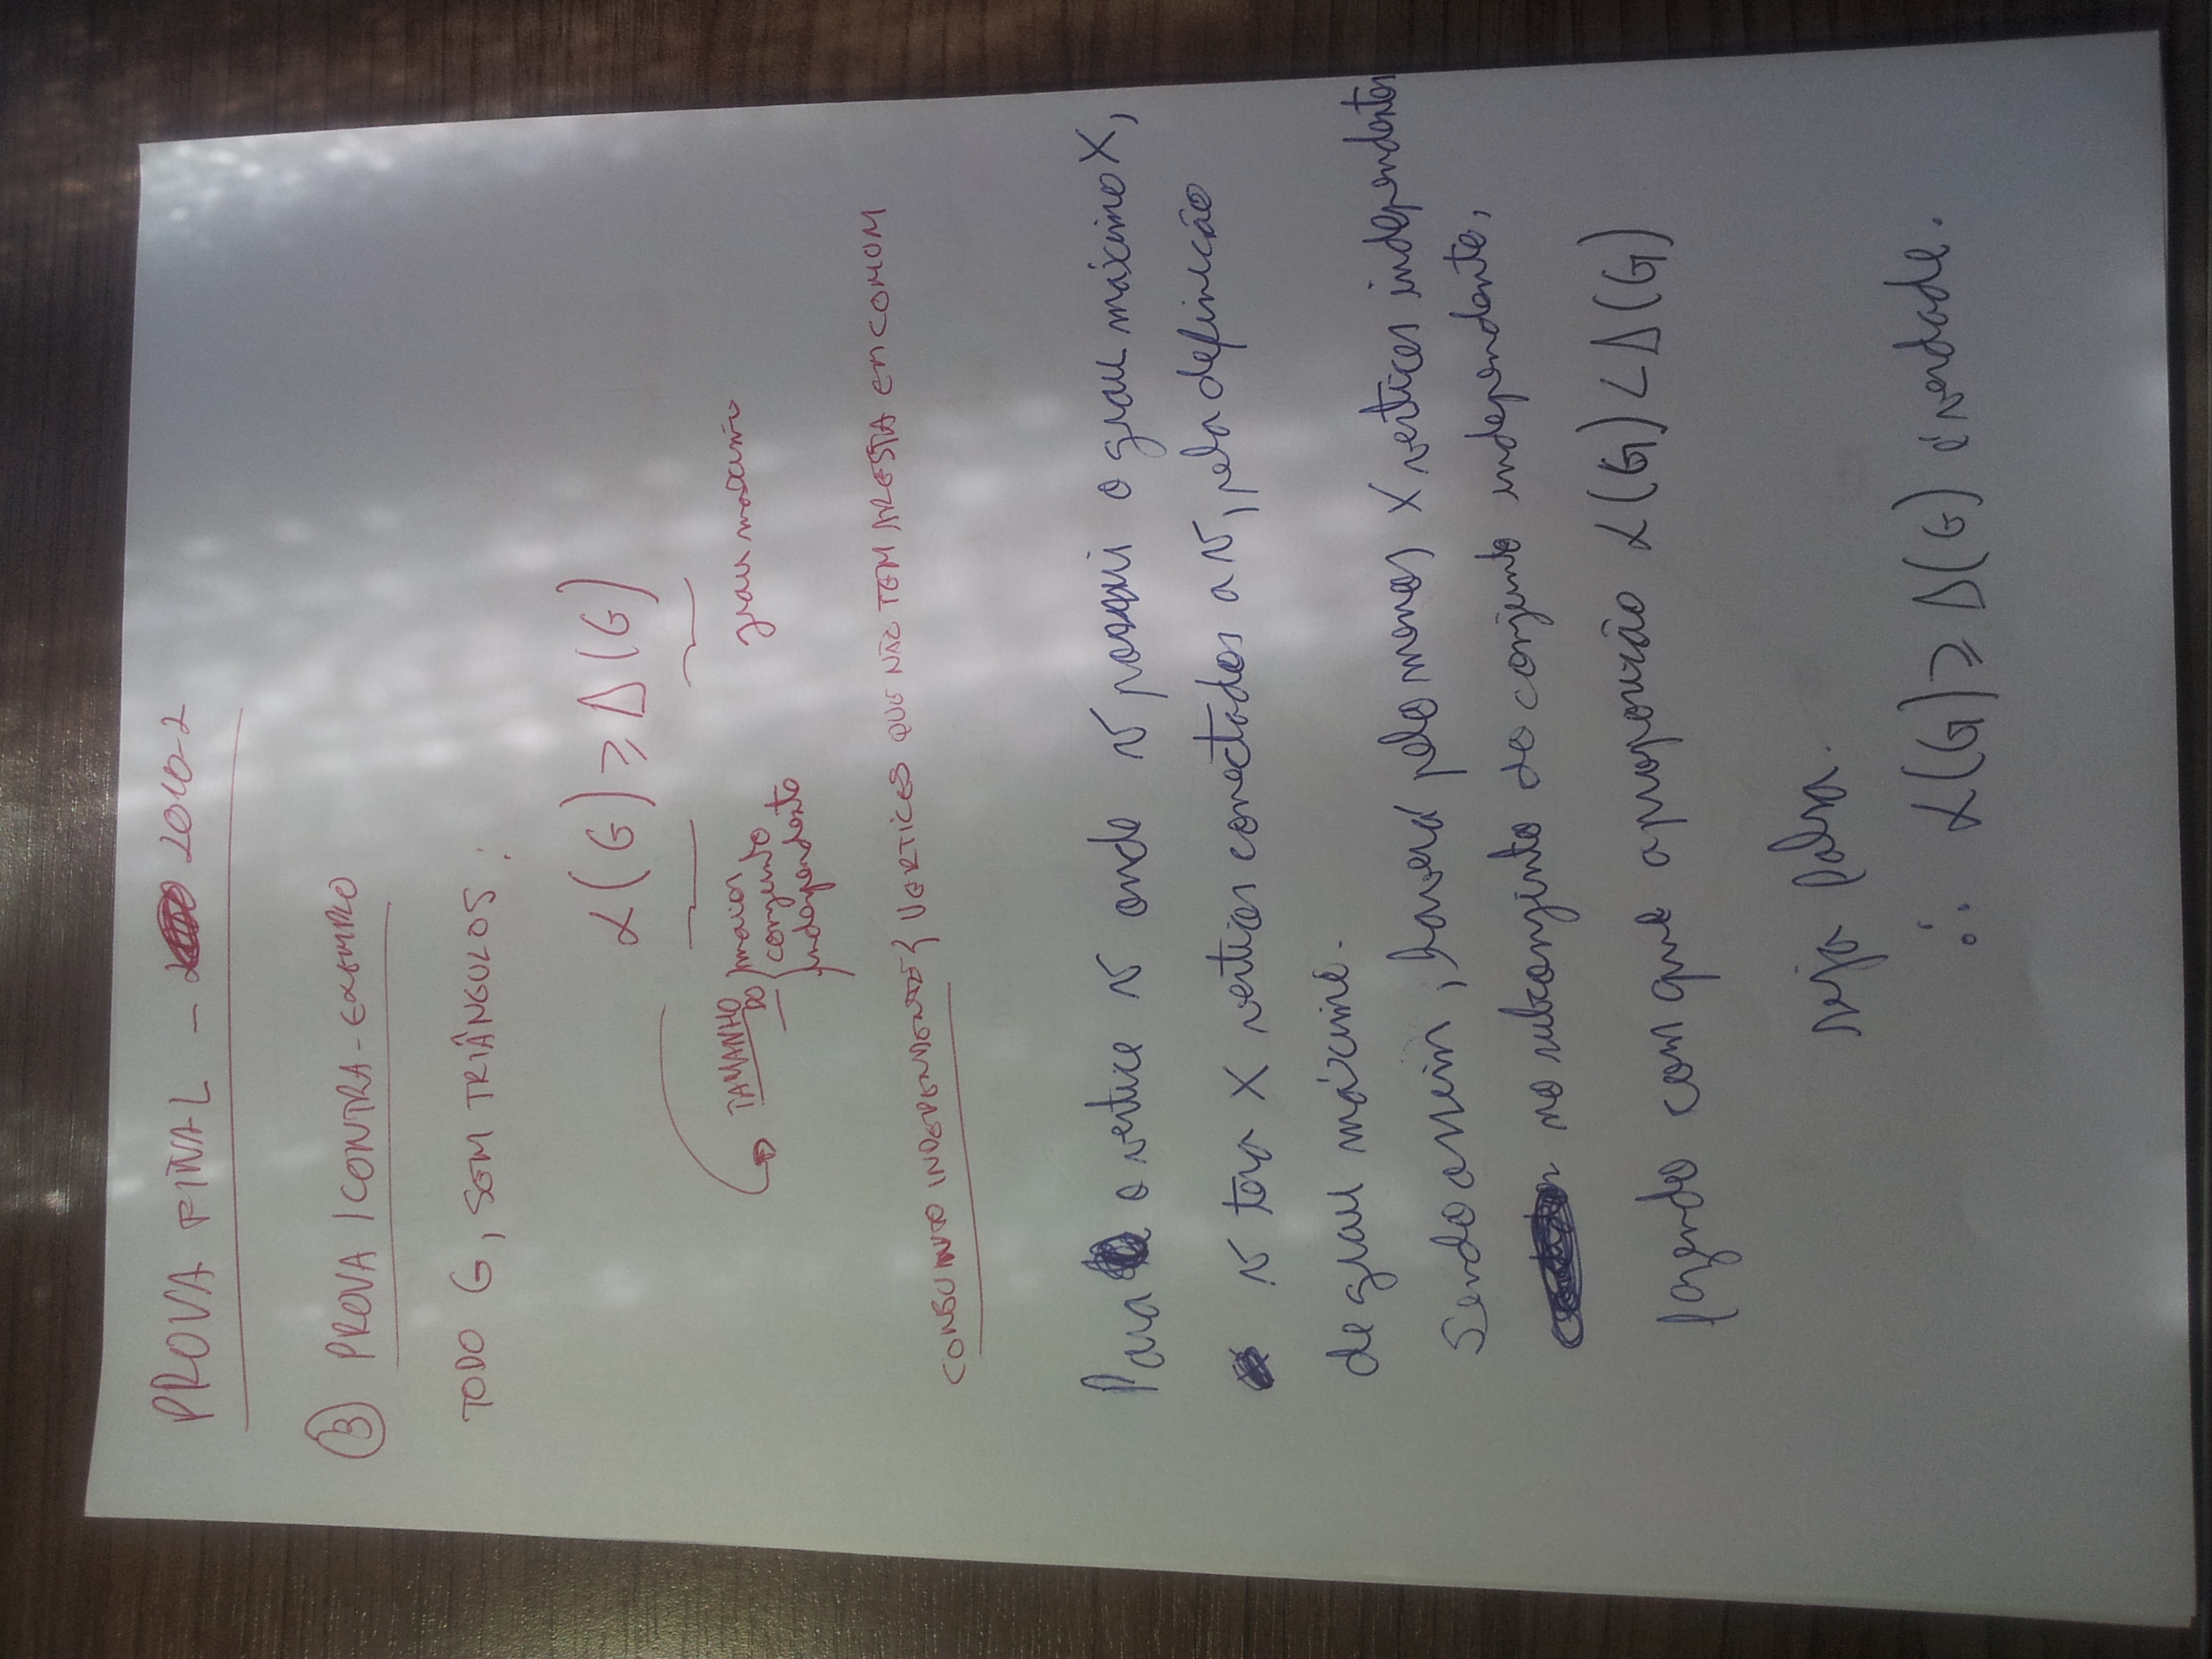 PROVA FINAL - 2010-2
3 PROVA / CONTRA-EXEMPLO
TODO G, SEM TRIÂNGULOS:
α(G) ≥ Δ(G)
TAMANHO DO } maior conjunto independente
grau máximo
CONJUNTO INDEPENDENTE { VERTICES QUE NÃO TEM ARESTA EM COMUM
Para o vertice v onde v possui o grau máximo X,
v tera X vertices conectados a v, pela definição
de grau máximo.
Sendo assim, havera pelo menos X vertices independentes
no subconjunto do conjunto independente,
fazendo com que a proposição α(G) < Δ(G)
seja falsa.
∴ α(G) ≥ Δ(G) é verdade.